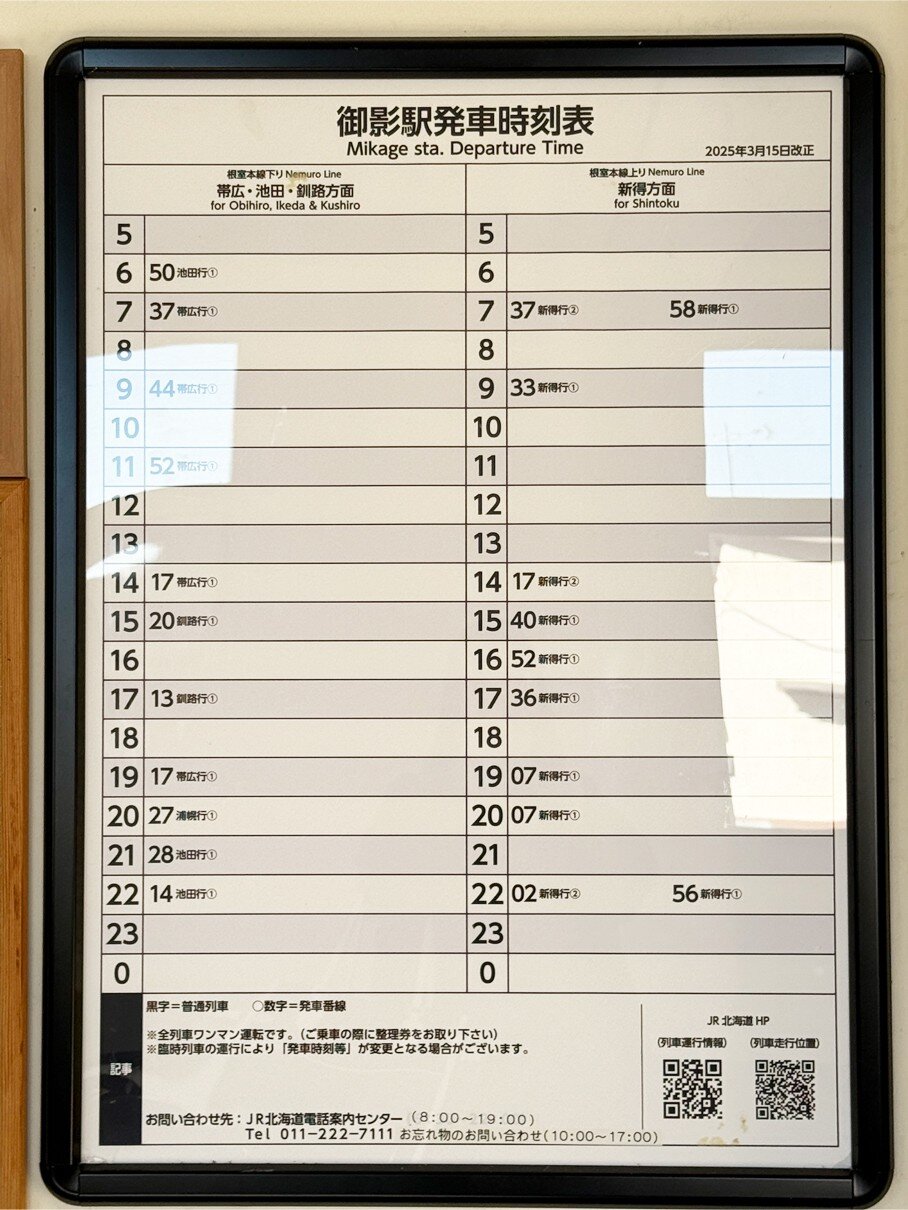 御影駅発車時刻表
Mikage sta. Departure Time
2025年3月15日改正
根室本線下り Nemuro Line
帯広・池田・釧路方面
for Obihiro, Ikeda & Kushiro
根室本線上り Nemuro Line
新得方面
for Shintoku
5 5
6 50 池田行① 6
7 37 帯広行① 7 37 新得行② 58 新得行①
8 8
9 44 帯広行① 9 33 新得行①
10 10
11 52 帯広行① 11
12 12
13 13
14 17 帯広行① 14 17 新得行②
15 20 釧路行① 15 40 新得行①
16 16 52 新得行①
17 13 釧路行① 17 36 新得行①
18 18
19 17 帯広行① 19 07 新得行①
20 27 浦幌行① 20 07 新得行①
21 28 池田行① 21
22 14 池田行① 22 02 新得行② 56 新得行①
23 23
0 0
記事
黒字=普通列車 ○数字=発車番線
※全列車ワンマン運転です。(ご乗車の際に整理券をお取り下さい)
※臨時列車の運行により「発車時刻等」が変更となる場合がございます。
お問い合わせ先：JR北海道電話案内センター (8:00~19:00)
Tel 011-222-7111 お忘れ物のお問い合わせ(10:00~17:00)
JR 北海道 HP
(列車運行情報) (列車走行位置)